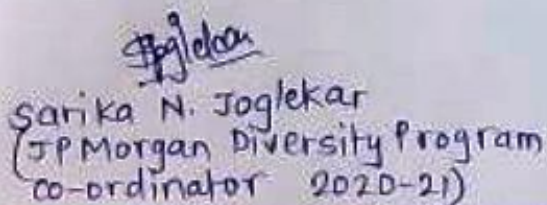 Sarika N. Joglekar
(JP Morgan Diversity Program
co-ordinator 2020-21)